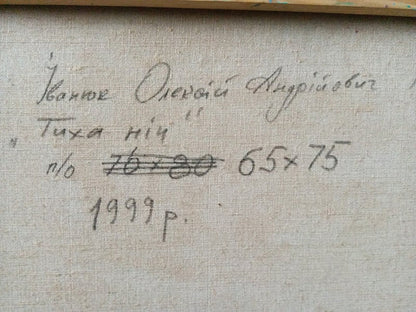 Іванюк Олексій Андрійович
"Тиха ніч"
п/о 70 x 80 65 x 75
1999 р.